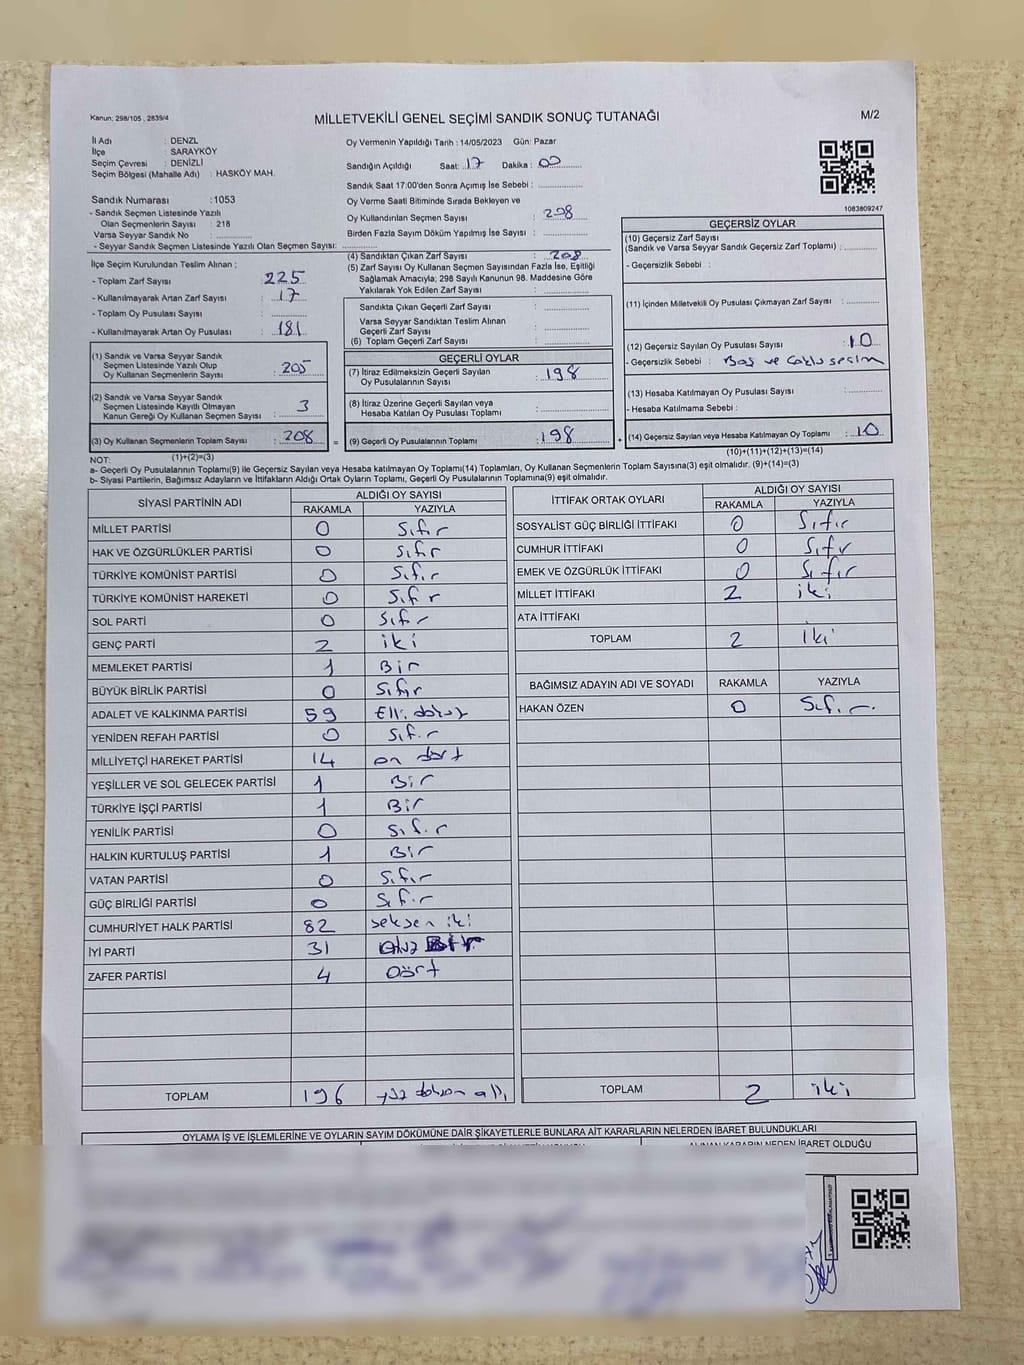 Kanun; 298/105 , 2839/4
MİLLETVEKİLİ GENEL SEÇİMİ SANDIK SONUÇ TUTANAĞI
M/2
İl Adı : DENZL
İlçe : SARAYKÖY
Seçim Çevresi : DENİZLİ
Seçim Bölgesi (Mahalle Adı) : HASKÖY MAH.
Sandık Numarası :1053
- Sandık Seçmen Listesinde Yazılı
Olan Seçmenlerin Sayısı : 218
Varsa Seyyar Sandık No :
- Seyyar Sandık Seçmen Listesinde Yazılı Olan Seçmen Sayısı:
Oy Vermenin Yapıldığı Tarih : 14/05/2023 Gün: Pazar
Sandığın Açıldığı Saat: 17 Dakika : 00
Sandık Saat 17:00'den Sonra Açımış İse Sebebi :
Oy Verme Saati Bitiminde Sırada Bekleyen ve
Oy Kullandırılan Seçmen Sayısı : 208
Birden Fazla Sayım Döküm Yapılmış İse Sayısı :
1083809247
İlçe Seçim Kurulundan Teslim Alınan ;
- Toplam Zarf Sayısı : 225
- Kullanılmayarak Artan Zarf Sayısı : 17
- Toplam Oy Pusulası Sayısı :
- Kullanılmayarak Artan Oy Pusulası : 181
(1) Sandık ve Varsa Seyyar Sandık
Seçmen Listesinde Yazılı Olup
Oy Kullanan Seçmenlerin Sayısı : 205
(2) Sandık ve Varsa Seyyar Sandık
Seçmen Listesinde Kayıtlı Olmayan
Kanun Gereği Oy Kullanan Seçmen Sayısı : 3
(3) Oy Kullanan Seçmenlerin Toplam Sayısı : 208 =
(4) Sandıktan Çıkan Zarf Sayısı : 208
(5) Zarf Sayısı Oy Kullanan Seçmen Sayısından Fazla İse, Eşitliği
Sağlamak Amacıyla; 298 Sayılı Kanunun 98. Maddesine Göre
Yakılarak Yok Edilen Zarf Sayısı :
Sandıkta Çıkan Geçerli Zarf Sayısı :
Varsa Seyyar Sandıktan Teslim Alınan
Geçerli Zarf Sayısı :
(6) Toplam Geçerli Zarf Sayısı :
GEÇERLİ OYLAR
(7) İtiraz Edilmeksizin Geçerli Sayılan
Oy Pusulalarının Sayısı : 198
(8) İtiraz Üzerine Geçerli Sayılan veya
Hesaba Katılan Oy Pusulası Toplamı :
(9) Geçerli Oy Pusulalarının Toplamı : 198 +
GEÇERSİZ OYLAR
(10) Geçersiz Zarf Sayısı
(Sandık ve Varsa Seyyar Sandık Geçersiz Zarf Toplamı) :
- Geçersizlik Sebebi :
(11) İçinden Milletvekili Oy Pusulası Çıkmayan Zarf Sayısı :
(12) Geçersiz Sayılan Oy Pusulası Sayısı : 10
- Geçersizlik Sebebi : Boş ve Çoklu seçim
(13) Hesaba Katılmayan Oy Pusulası Sayısı :
- Hesaba Katılmama Sebebi :
(14) Geçersiz Sayılan veya Hesaba Katılmayan Oy Toplamı : 10
(1)+(2)=(3)
(10)+(11)+(12)+(13)=(14)
NOT:
a- Geçerli Oy Pusulalarının Toplamı(9) ile Geçersiz Sayılan veya Hesaba katılmayan Oy Toplamı(14) Toplamları, Oy Kullanan Seçmenlerin Toplam Sayısına(3) eşit olmalıdır. (9)+(14)=(3)
b- Siyasi Partilerin, Bağımsız Adayların ve İttifakların Aldığı Ortak Oyların Toplamı, Geçerli Oy Pusulalarının Toplamına(9) eşit olmalıdır.
SİYASİ PARTİNİN ADI ALDIĞI OY SAYISI
RAKAMLA YAZIYLA
MİLLET PARTİSİ 0 Sıfır
HAK VE ÖZGÜRLÜKLER PARTİSİ 0 Sıfır
TÜRKİYE KOMÜNİST PARTİSİ 0 Sıfır
TÜRKİYE KOMÜNİST HAREKETİ 0 Sıfır
SOL PARTİ 0 Sıfır
GENÇ PARTİ 2 iki
MEMLEKET PARTİSİ 1 Bir
BÜYÜK BİRLİK PARTİSİ 0 Sıfır
ADALET VE KALKINMA PARTİSİ 59 Elli dokuz
YENİDEN REFAH PARTİSİ 0 Sıfır
MİLLİYETÇİ HAREKET PARTİSİ 14 on dört
YEŞİLLER VE SOL GELECEK PARTİSİ 1 Bir
TÜRKİYE İŞÇİ PARTİSİ 1 Bir
YENİLİK PARTİSİ 0 Sıfır
HALKIN KURTULUŞ PARTİSİ 1 Bir
VATAN PARTİSİ 0 Sıfır
GÜÇ BİRLİĞİ PARTİSİ 0 Sıfır
CUMHURİYET HALK PARTİSİ 82 seksen iki
İYİ PARTİ 31 Otuz Bir
ZAFER PARTİSİ 4 Dört
TOPLAM 196 yüz doksan altı
İTTİFAK ORTAK OYLARI ALDIĞI OY SAYISI
RAKAMLA YAZIYLA
SOSYALİST GÜÇ BİRLİĞİ İTTİFAKI 0 Sıfır
CUMHUR İTTİFAKI 0 Sıfır
EMEK VE ÖZGÜRLÜK İTTİFAKI 0 Sıfır
MİLLET İTTİFAKI 2 iki
ATA İTTİFAKI
TOPLAM 2 iki
BAĞIMSIZ ADAYIN ADI VE SOYADI RAKAMLA YAZIYLA
HAKAN ÖZEN 0 Sıfır
TOPLAM 2 iki
OYLAMA İŞ VE İŞLEMLERİNE VE OYLARIN SAYIM DÖKÜMÜNE DAİR ŞİKAYETLERLE BUNLARA AİT KARARLARIN NELERDEN İBARET BULUNDUKLARI
ALINAN KARARIN NEDEN İBARET OLDUĞU